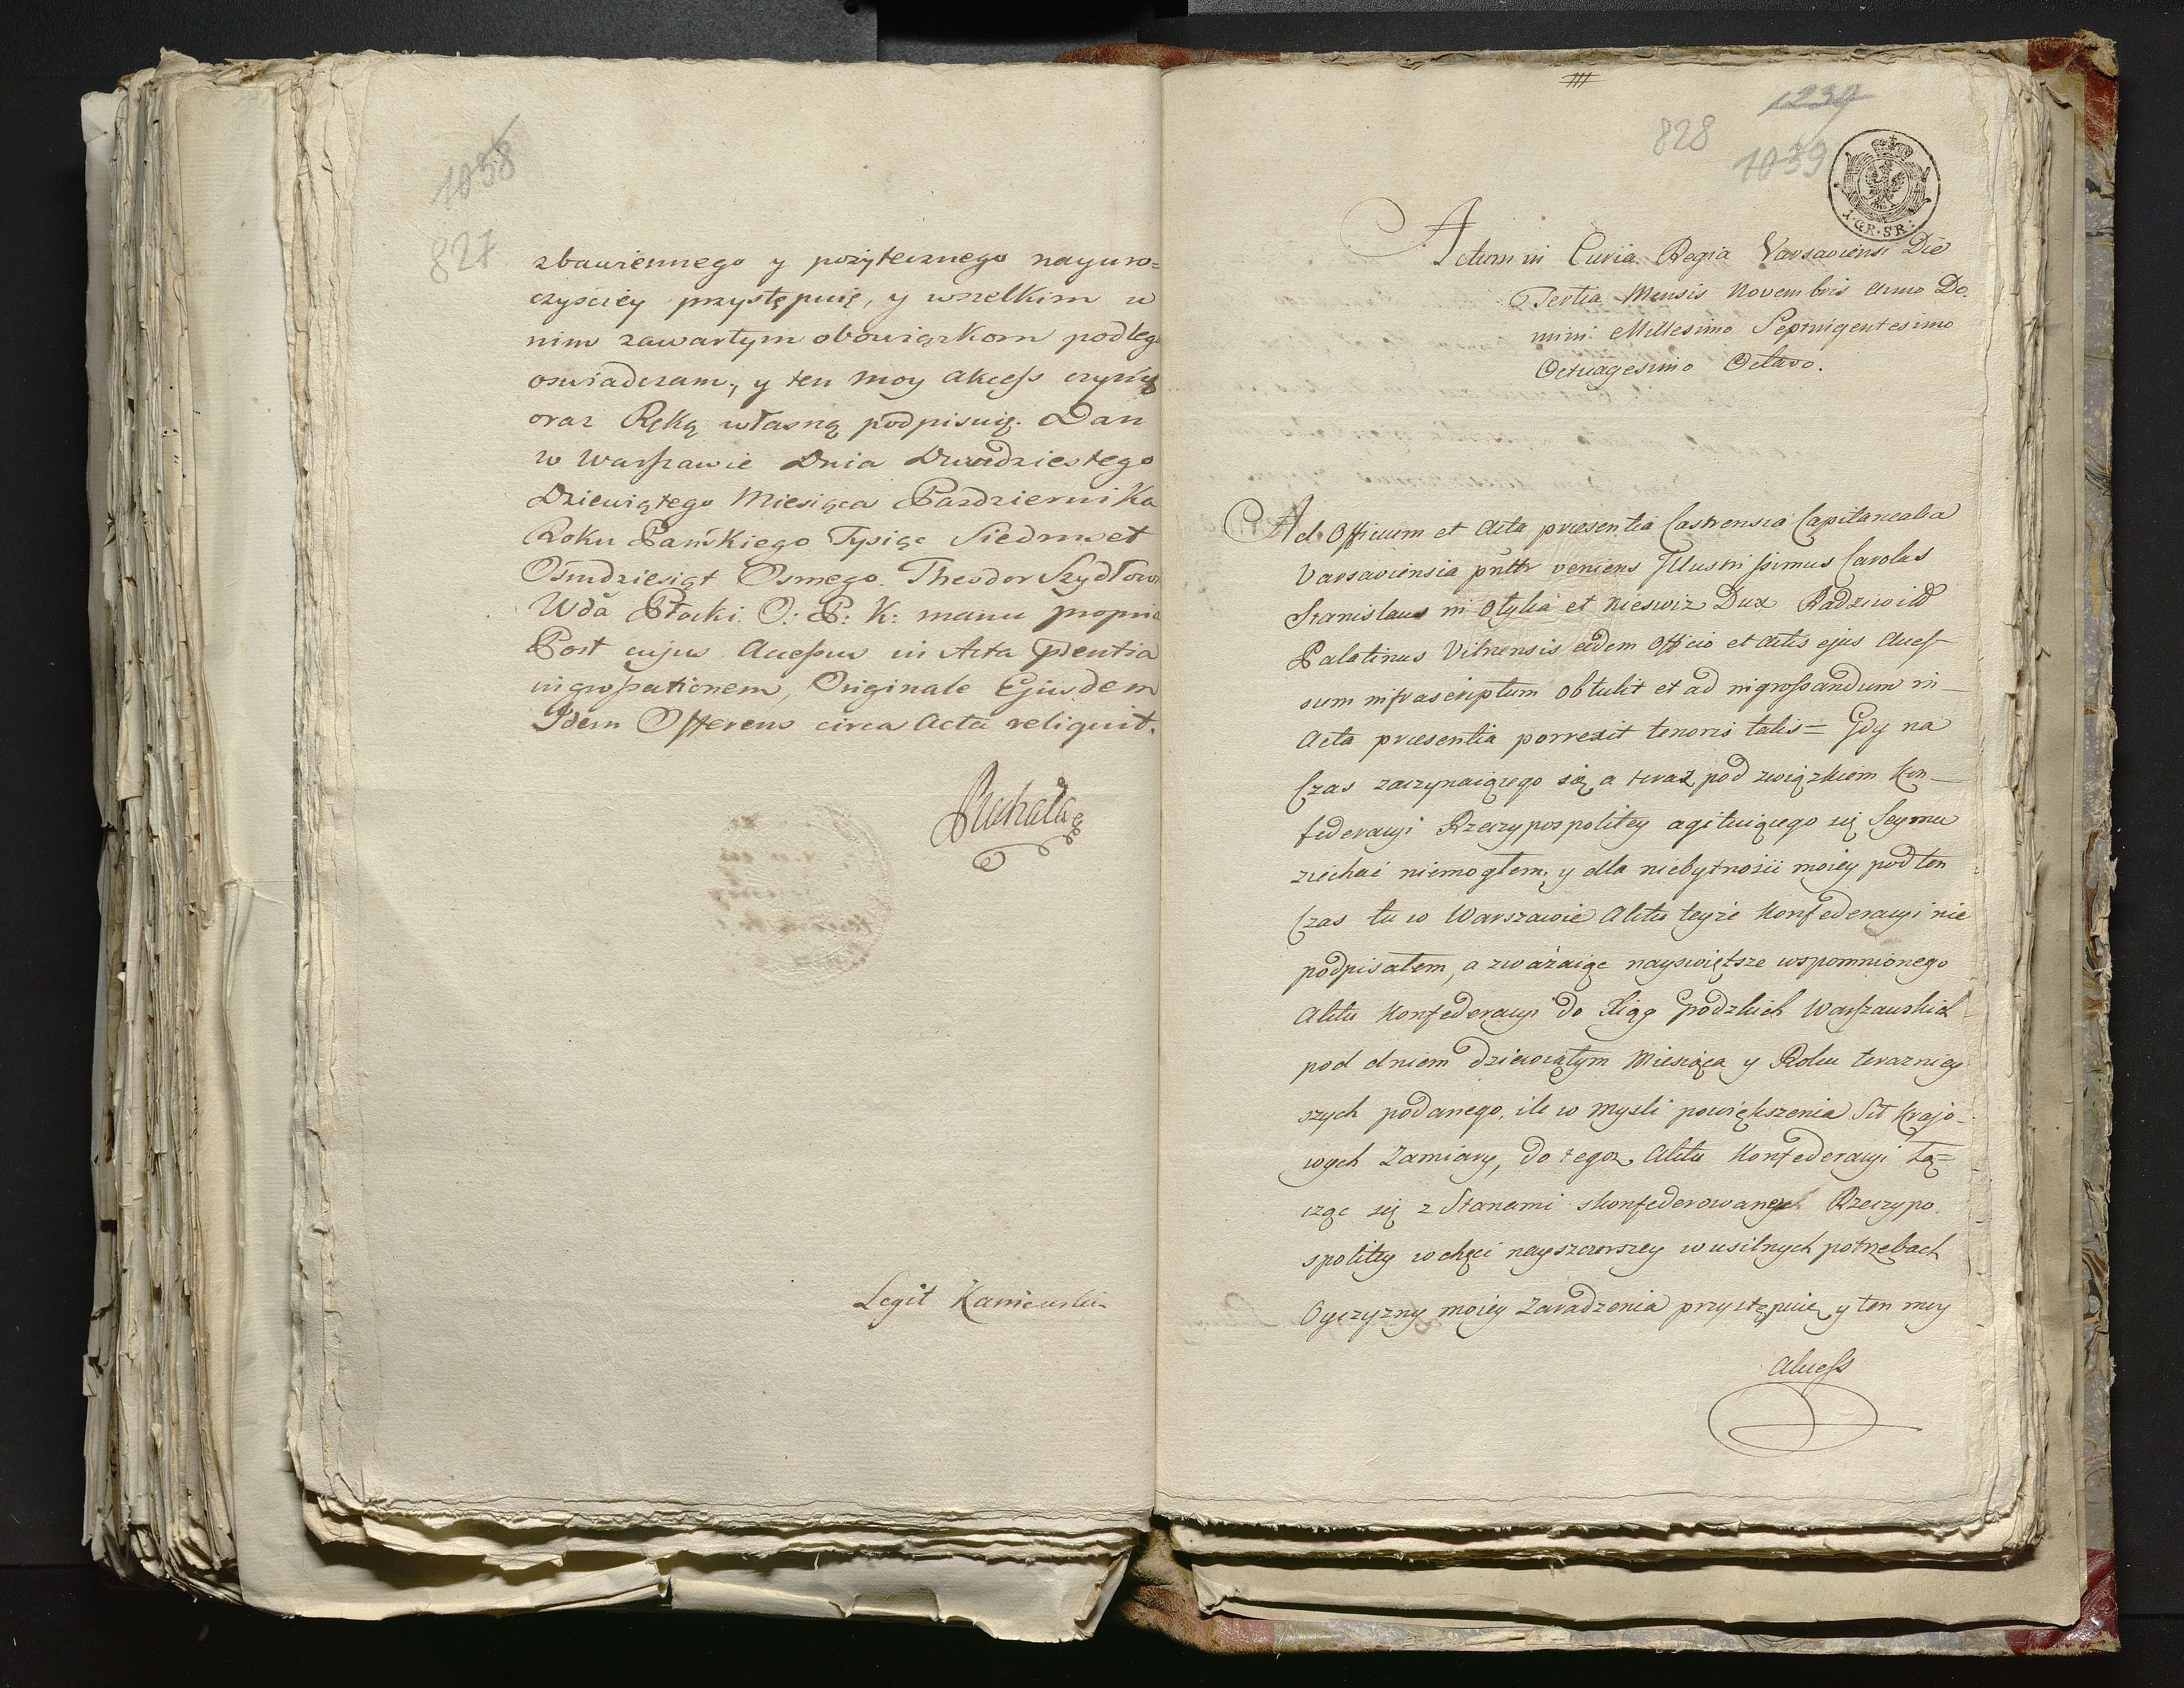 1058
827
zbawiennego y pożytecznego nayuro=
czyściey przystępuię, y wszelkim w
nim zawartym obowiązkom podleg
oswiadczam, y ten moy akceſs czynię
oraz Ręką własną podpisuię. Dan
w Warſzawie Dnia Dwudziestego
Dziewiątego Miesiąca Pazdziernika
Roku Pańskiego Tysiąc Siedmset
Osmdziesiąt Osmego. Theodor Szydłow
Wdã Płocki. O: P: K: manu propria
Post cujus Acceſsus in Acta pſentia
ingroſsationem, Originale Ejusdem
Idem Offerens circa Acta reliquit.
Legit Kaniewski
828
1039
I·GR·SR·
Actum in Curia Regia Varsaviensi Die
Tertia Mensis Novembris Anno Do
mini Millesimo Septingentesimo
Octuagesimo Octavo.
Ad Officium et Acta præsentia Castrensia Capitanealia
Varsaviensia pñltr veniens Illustriſsimus Carolus
Stanislaus in Olyka et Nieswiz Dux Radziwiłł
Palatinus Vilnensis eidem Officio et Actis ejus Acceſ-
sum infrascriptum obtulit et ad ingroſsandum in-
Acta præsentia porrexit tenoris talis= Gdy na
Czas zaczynaiącego się a teraz pod związkiem Kon-
federacyi Rzeczypospolitey agituiącego się Seymu
ziechać niemogłem, y dla niebytności moiey pod ten
Czas tu w Warszawie Aktu teyże Konfederacyi nie
podpisałem, a zważaiąc nayswiętsze wspomnionego
Aktu Konfederacyi do Xiąg Grodzkich Warſzawskich
pod dniem dziewiątym Miesiąca y Roku teraznieg
szych podanego, ile w mysli powiększenia Sił krajo-
wych Zamiary, do tegoz Aktu Konfederacyi łą=
cząc się z Stanami skonfederowaney Rzeczypo
spolitey w chęci nayszczerszey w usilnych potrzebach
Oyczyzny moiey Zaradzenia przystępuię y ten moy
Akceſs